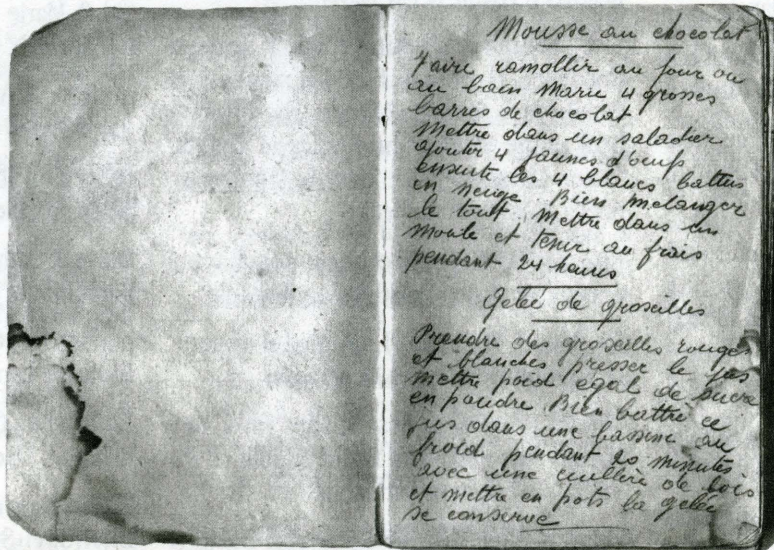 Mousse au chocolat
Faire ramollir au four ou
au bain Marie 4 grosses
barres de chocolat
Mettre dans un saladier
ajouter 4 jaunes d'œufs
ensuite les 4 blancs battus
en neige. Bien melanger
le tout. Mettre dans un
moule et tenir au frais
pendant 24 heures
Gelée de groseilles
Prendre des groseilles rouges
et blanches presser le jus
mettre poid egal de sucre
en poudre. Bien battre ce
jus dans une bassine au
froid pendant 20 minutes
avec une cuillère de bois
et mettre en pots la gelée
se conserve